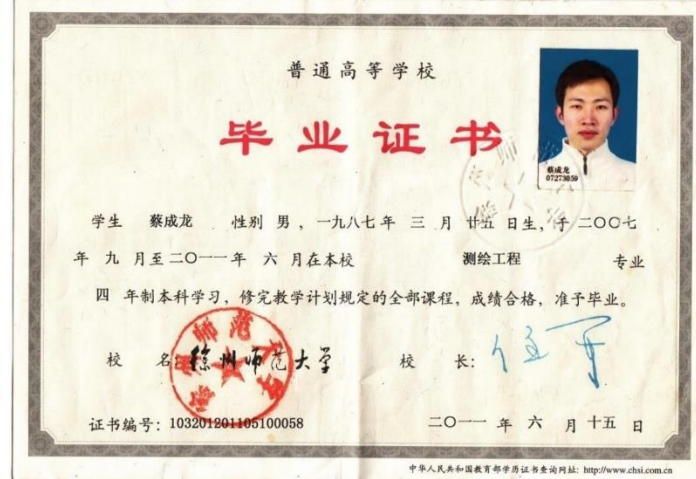 普通高等学校
毕业证书
蔡成龙
07273059
学生 蔡成龙 性别 男，一九八七年 三 月 廿五 日生，于二〇〇七
年 九 月至二〇一一年 六 月在本校 测绘工程 专业
四 年制本科学习，修完教学计划规定的全部课程，成绩合格，准予毕业。
校 名：徐州师范大学 校 长：
证书编号：103201201105100058 二〇一一 年 六 月 十五 日
中华人民共和国教育部学历证书查询网址：http://www.chsi.com.cn